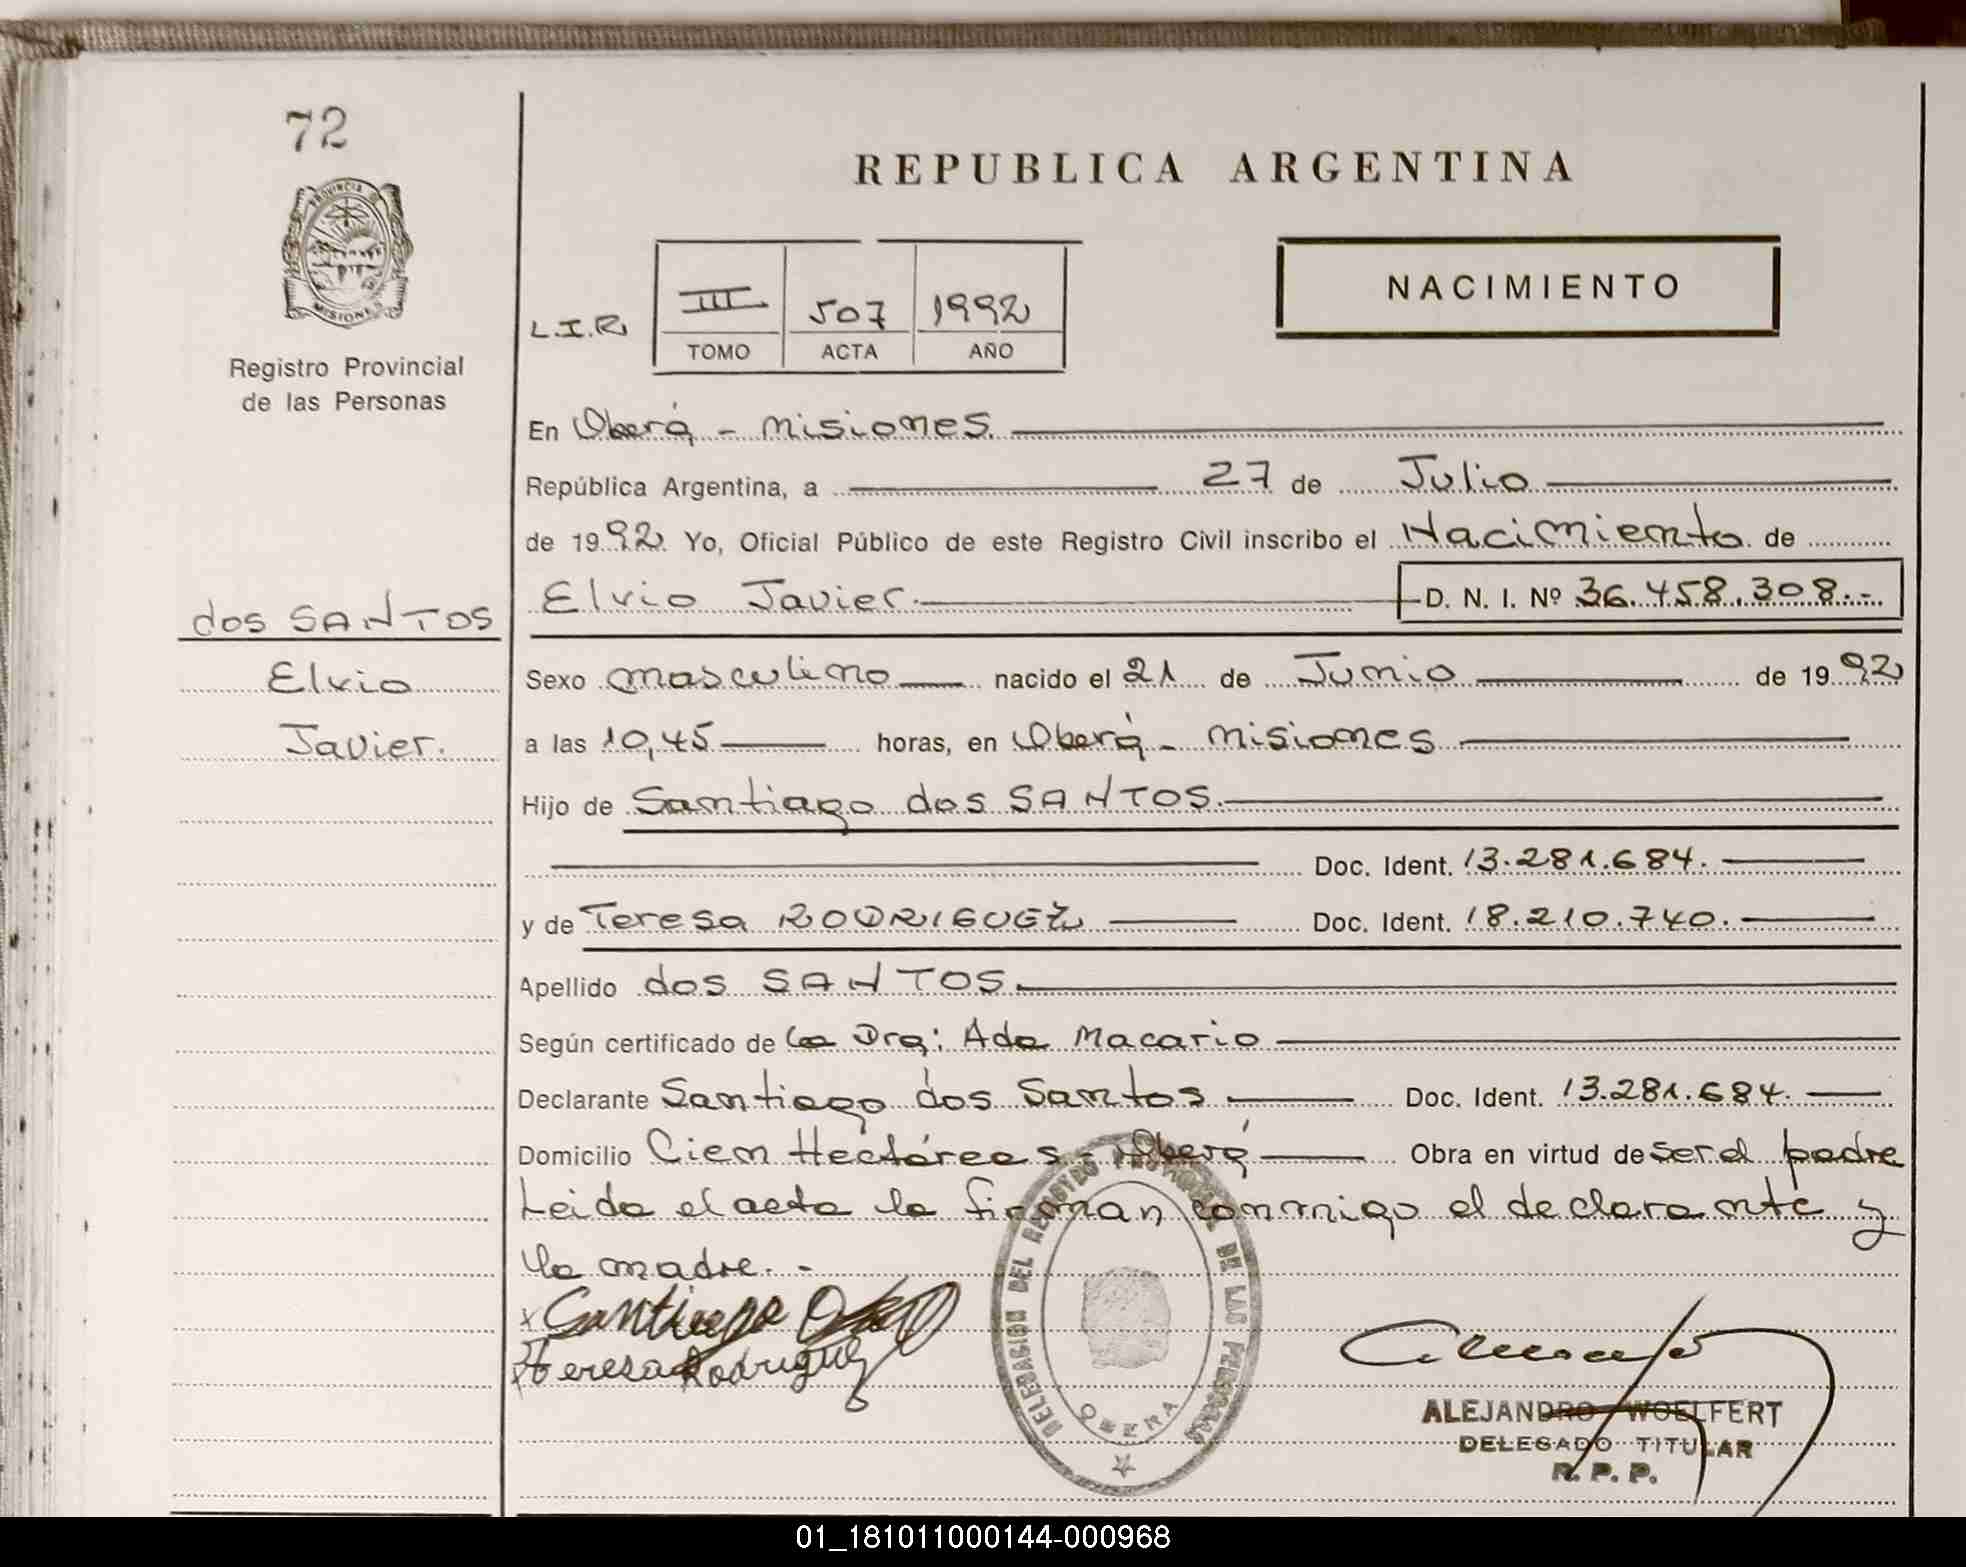 72
PROVINCIA
MISIONES
Registro Provincial
de las Personas
dos SANTOS
Elvio
Javier.
REPUBLICA ARGENTINA
NACIMIENTO
L.I.R. III 507 1992
TOMO ACTA AÑO
En Oberá - Misiones.
República Argentina, a 27 de Julio
de 1992. Yo, Oficial Público de este Registro Civil inscribo el Nacimiento de
Elvio Javier. D. N. I. Nº 36.458.308.-
Sexo masculino nacido el 21 de Junio de 1992
a las 10,45 horas, en Oberá - Misiones
Hijo de Santiago dos SANTOS.
Doc. Ident. 13.281.684.
y de Teresa RODRIGUEZ Doc. Ident. 18.210.740.
Apellido dos SANTOS.
Según certificado de la Dra: Ada Macario
Declarante Santiago dos Santos Doc. Ident. 13.281.684.
Domicilio Cien Hectáreas - Oberá Obra en virtud de ser el padre
Leida el acta la firman conmigo el declarante y
la madre. -
x Santiago
Teresa Rodriguez
DELEGACION DEL REGISTRO PROVINCIAL DE LAS PERSONAS
OBERA
ALEJANDRO WOELFERT
DELEGADO TITULAR
R. P. P.
01_181011000144-000968